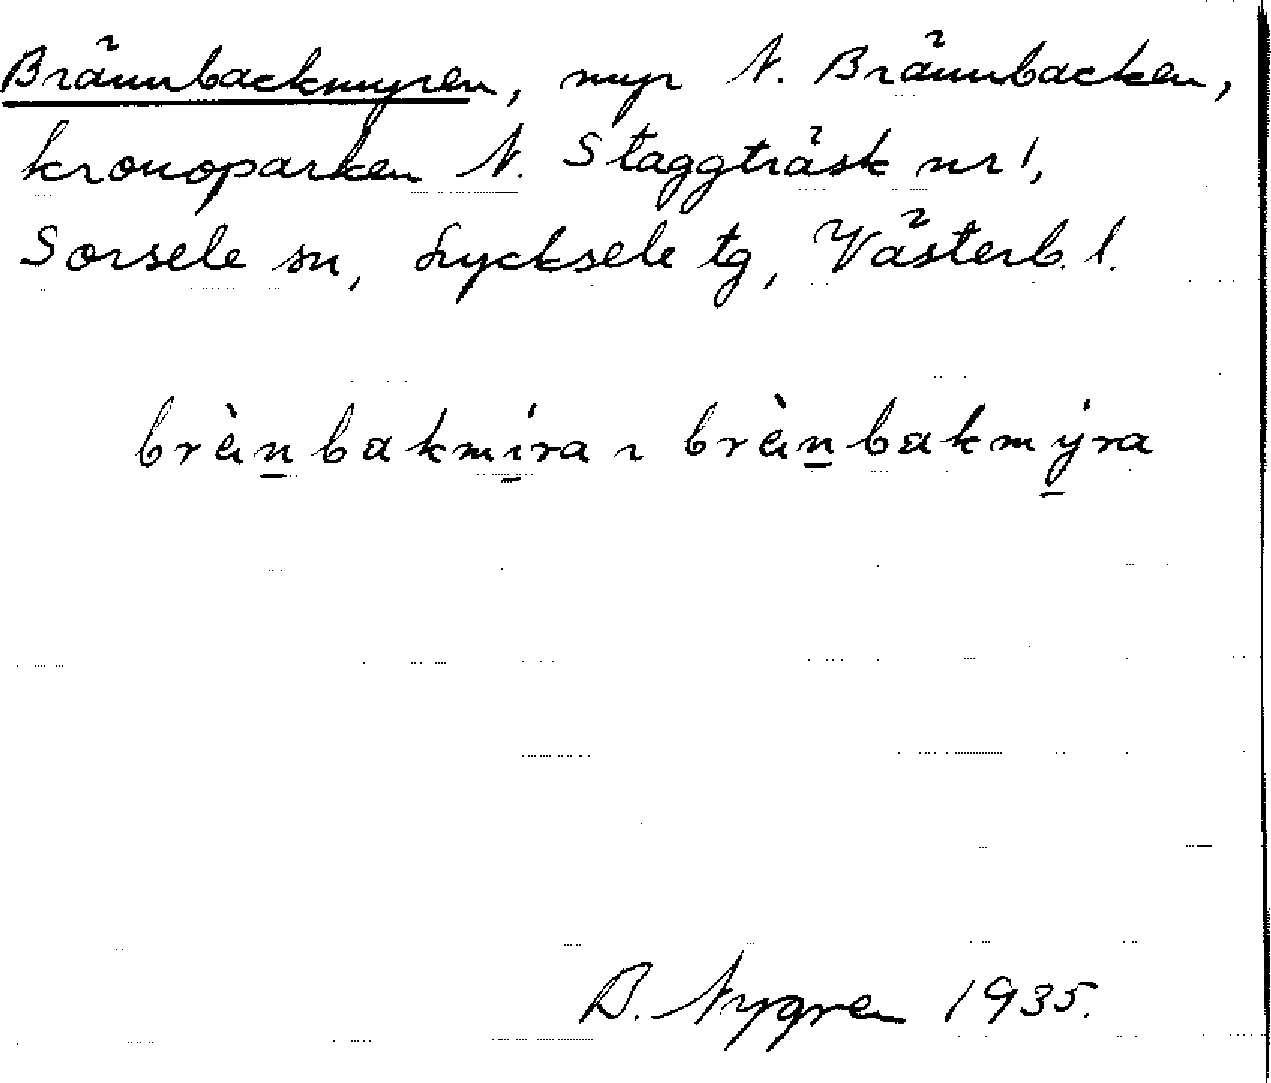 Brännbackmyren, myr N. Brännbacken,
kronoparken N. Staggträsk nr 1,
Sorsele sn, Lycksele tg, Västerb. l.
brèn̲bakmí̲ra ~ brèn̲bakmý̲ra
B. Nygren 1935.